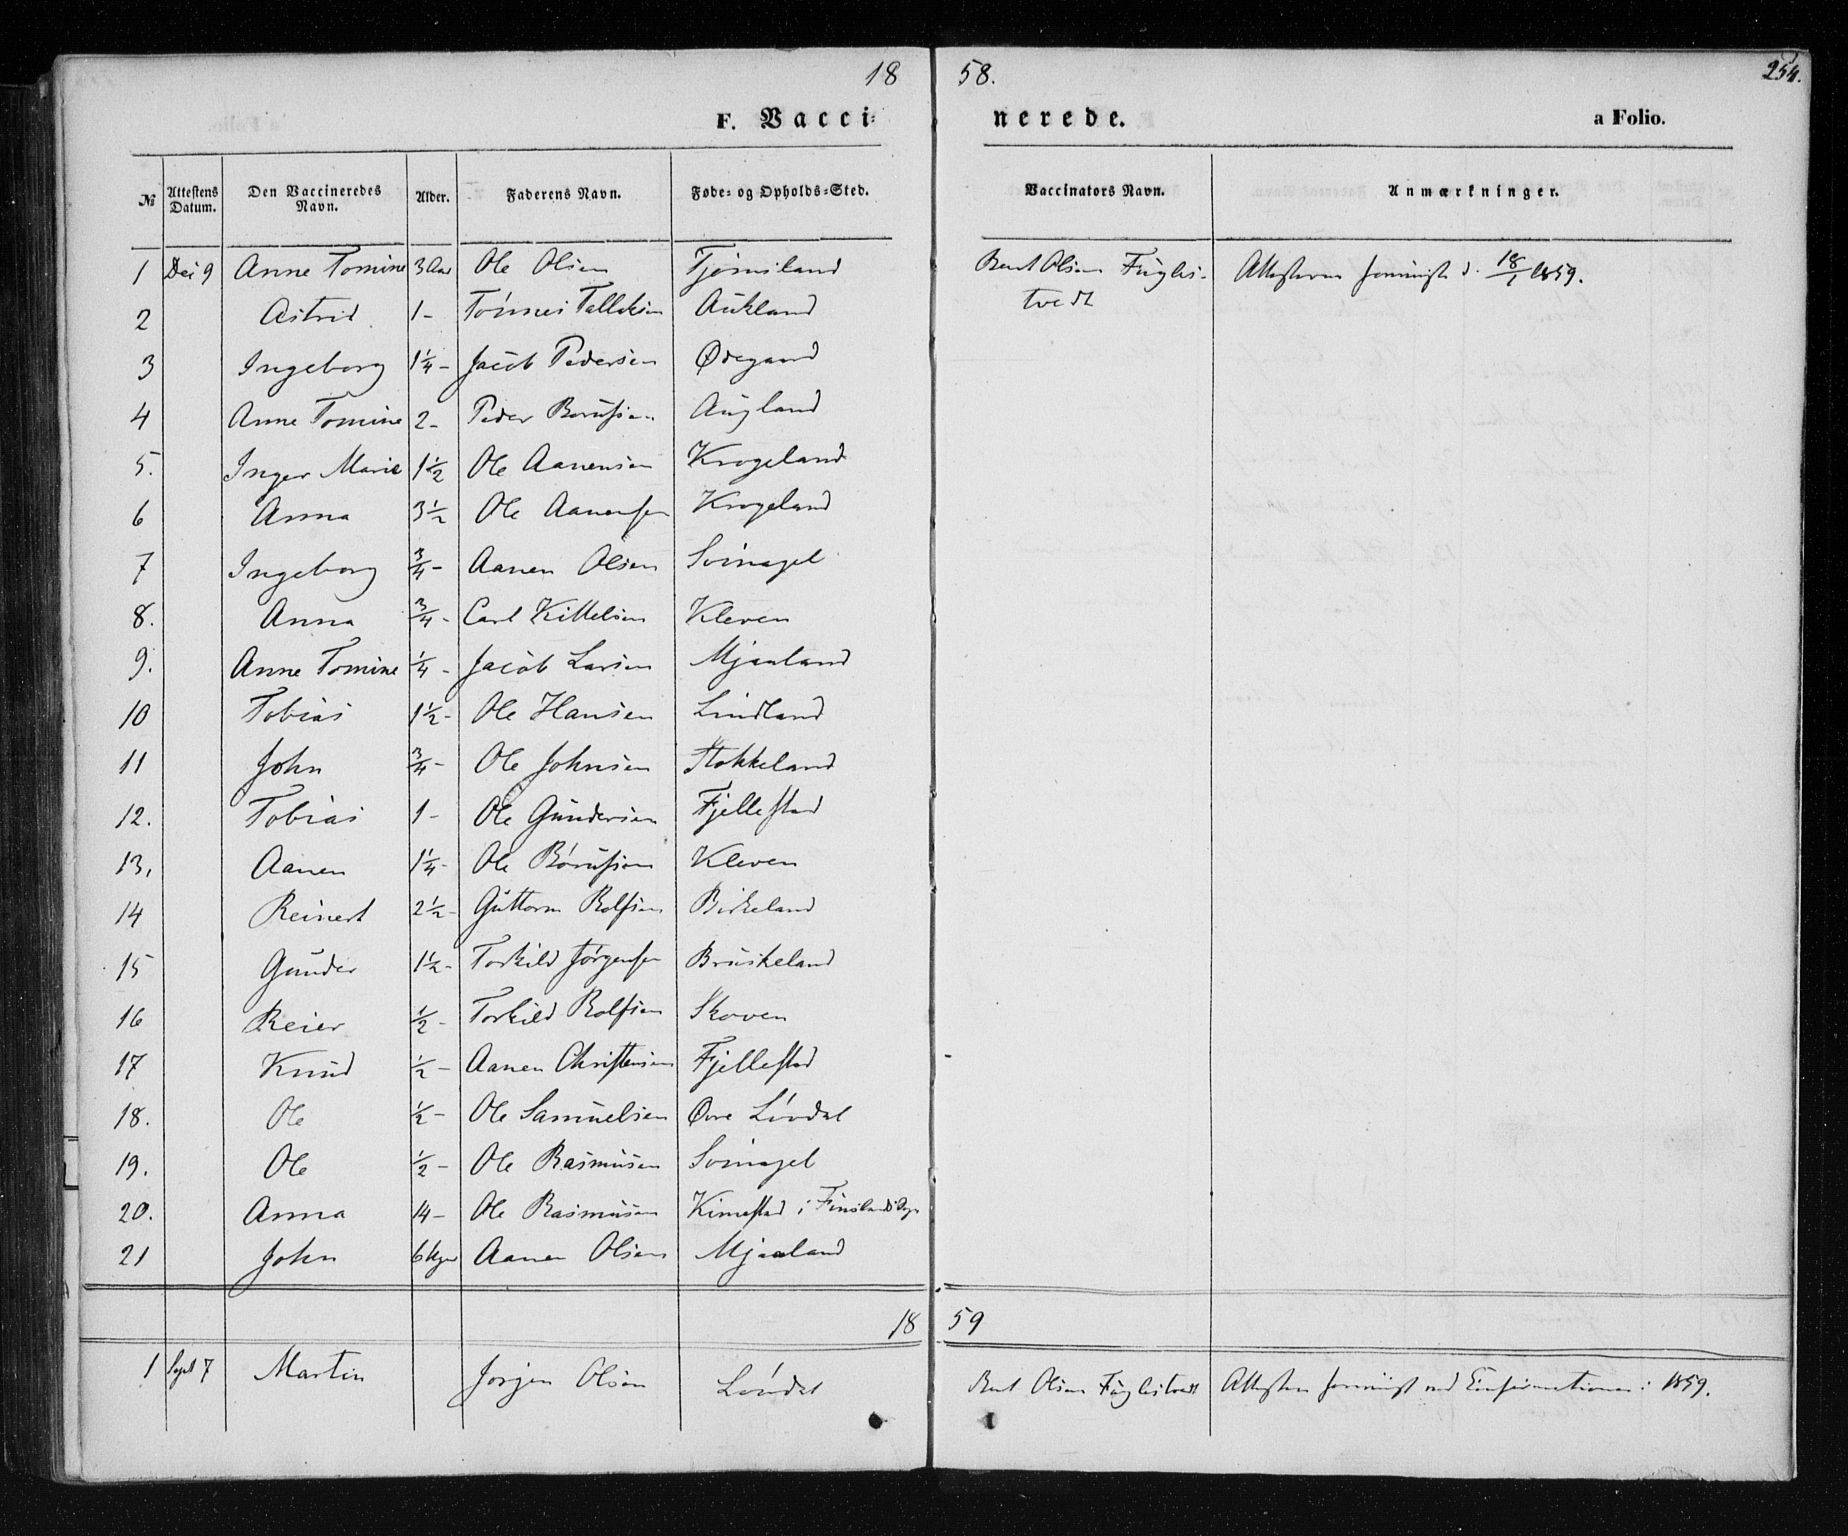 18 58. 254.
F. Vacci= nerede. a Folio.
№ Attestens Datum. Den Vaccineredes Navn. Alder. Faderens Navn. Føde- og Opholds-Sted. Vaccinators Navn. Anmærkninger.
1 Dec 9 Anne Tomine 3 Aar Ole Olsen Tjomsland Bent Olsen Fuglestvedt d. 18/1 1859.
2 Astrid 1 - Tönnes Tallaksen Aukland
3 Ingeborg 1 1/4 - Jacob Pedersen Ødegaard
4 Anne Tomine 2 - Peder Augland
5. Inger Marie 1 1/2 Ole Aanensen Krogeland
6 Anna 3 1/2 Ole Aanensen Krogeland
7 Ingeborg 3/4 - Aanen Olsen Svinagel
8. Anna 3/4 - Carl Kittelsen Kleven
9. Anne Tomine 1/4 - Jacob Larsen Mjaaland
10 Tobias 1 1/2 - Ole Hansen Lindland
11 John 3/4 - Ole Johnsen Stokkeland
12. Tobias 1 - Ole Gundersen Fjellestad
13. Aanen 1 1/4 - Ole Kleven
14 Reinert 2 1/2 - Guttorm Rolfsen Birkeland
15 Gunder 1 1/2 - Torkild Jørgensen Bruskeland
16 Reier 1/2 - Torkild Rolfsen Skoven
17 Knud 1/2 - Aanen Christensen Fjellestad
18. Ole 1/2 - Ole Samuelsen Øvre Lövdal
19. Ole 1/2 - Ole Rasmusen Svinagel
20. Anna 14 - Ole Rasmusen Kimestad i Finslands Sogn
21 John 6 Uger Aanen Olsen Mjaaland
18 59
1 Sept 7 Martin Jørgen Olsen Lövdal Bent Olsen Fuglestvedt ved Confirmationen i 1859.